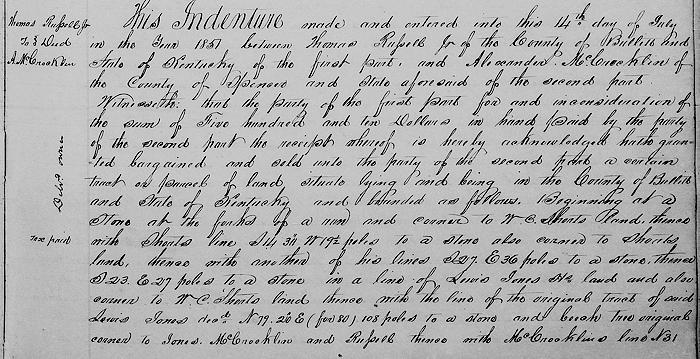 Thomas Russell Jr
To } Deed
A. McCrocklin
Deld owner
Tax paid
This Indenture made and entered into this 14th day of July
in the Year 1851 between Thomas Russell Jr of the County of Bullitt and
State of Kentucky of the first part, and Alexander McCrocklin of
the County of Spencer and State aforesaid of the second part
Witnesseth: that the party of the first part for and inconsideration of
the sum of Five hundred and ten Dollars in hand paid by the party
of the second part the receipt whereof is hereby acknowledged hath gran-
ted bargained and sold unto the party of the second part a certain
tract or parcel of land, situate lying and being in the County of Bullitt
and State of Kentucky and bounded as follows. Beginning at a
Stone at the forks of a run and corner to W. C. Shorts land, thence
with Shorts line S 14 34 W 192 poles to a stone also corner to Shorts
land, thence with another of his lines S 27. E 36 poles to a stone, thence
S 23. E. 27 poles to a stone in a line of Lewis Jones land and also
corner to W. C. Shorts land thence with the line of the original tract of said
Lewis Jones decd. N 79. 20 E (for 80) 108 poles to a stone and beech two original
corner to Jones. McCrocklin and Russell thence with McCrocklins line N 31